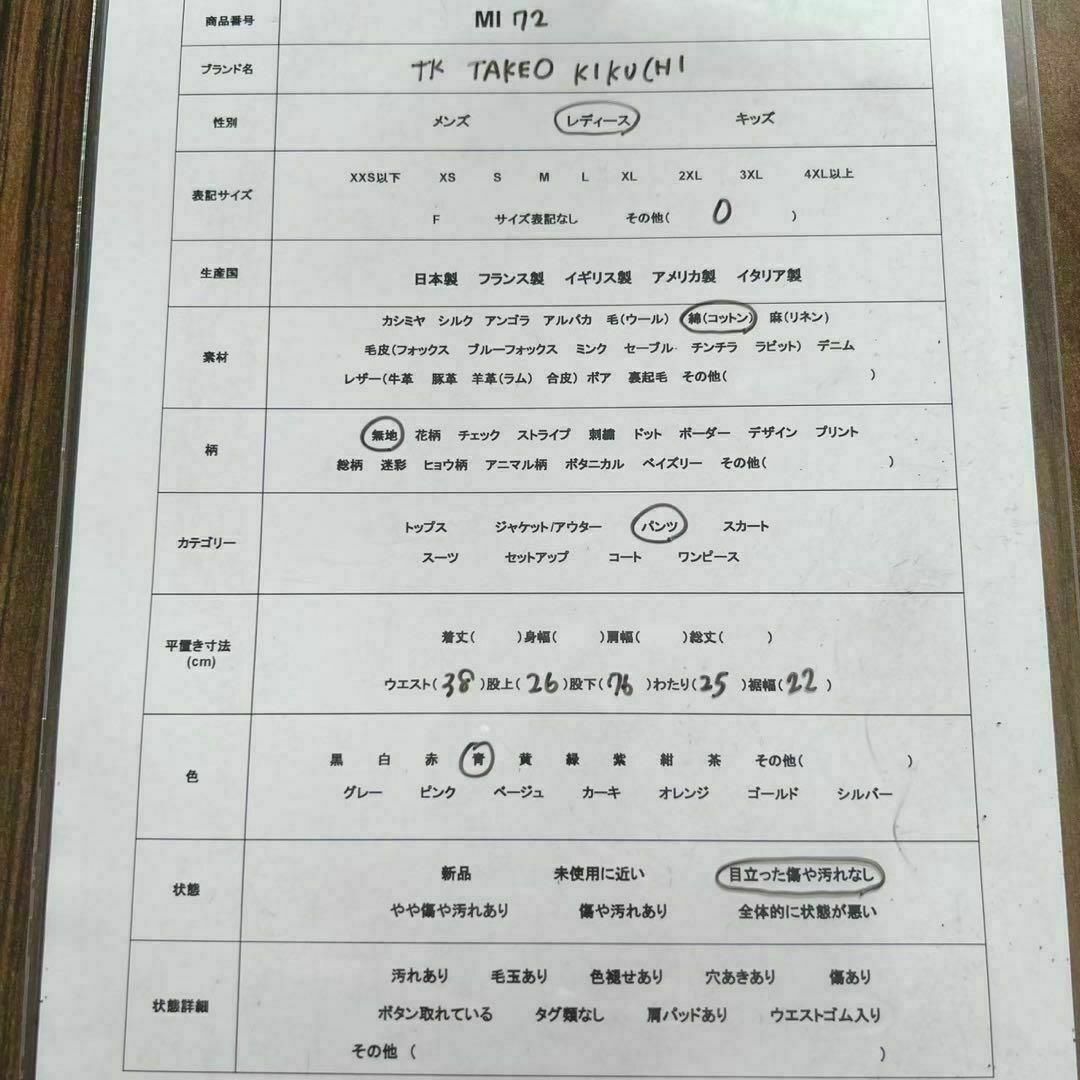 商品番号 MI 72
ブランド名 TK TAKEO KIKUCHI
性別 メンズ レディース キッズ
XXS以下 XS S M L XL 2XL 3XL 4XL以上
表記サイズ
F サイズ表記なし その他( 0 )
生産国 日本製 フランス製 イギリス製 アメリカ製 イタリア製
カシミヤ シルク アンゴラ アルパカ 毛(ウール) 綿(コットン) 麻(リネン)
素材 毛皮(フォックス ブルーフォックス ミンク セーブル チンチラ ラビット) デニム
レザー(牛革 豚革 羊革(ラム) 合皮) ボア 裏起毛 その他( )
無地 花柄 チェック ストライプ 刺繍 ドット ボーダー デザイン プリント
柄
総柄 迷彩 ヒョウ柄 アニマル柄 ボタニカル ペイズリー その他( )
トップス ジャケット/アウター パンツ スカート
カテゴリー
スーツ セットアップ コート ワンピース
平置き寸法 着丈( )身幅( )肩幅( )総丈( )
(cm)
ウエスト( 38 )股上( 26 )股下( 76 )わたり( 25 )裾幅( 22 )
黒 白 赤 青 黄 緑 紫 紺 茶 その他( )
色
グレー ピンク ベージュ カーキ オレンジ ゴールド シルバー
新品 未使用に近い 目立った傷や汚れなし
状態
やや傷や汚れあり 傷や汚れあり 全体的に状態が悪い
汚れあり 毛玉あり 色褪せあり 穴あきあり 傷あり
状態詳細 ボタン取れている タグ類なし 肩パッドあり ウエストゴム入り
その他 ( )